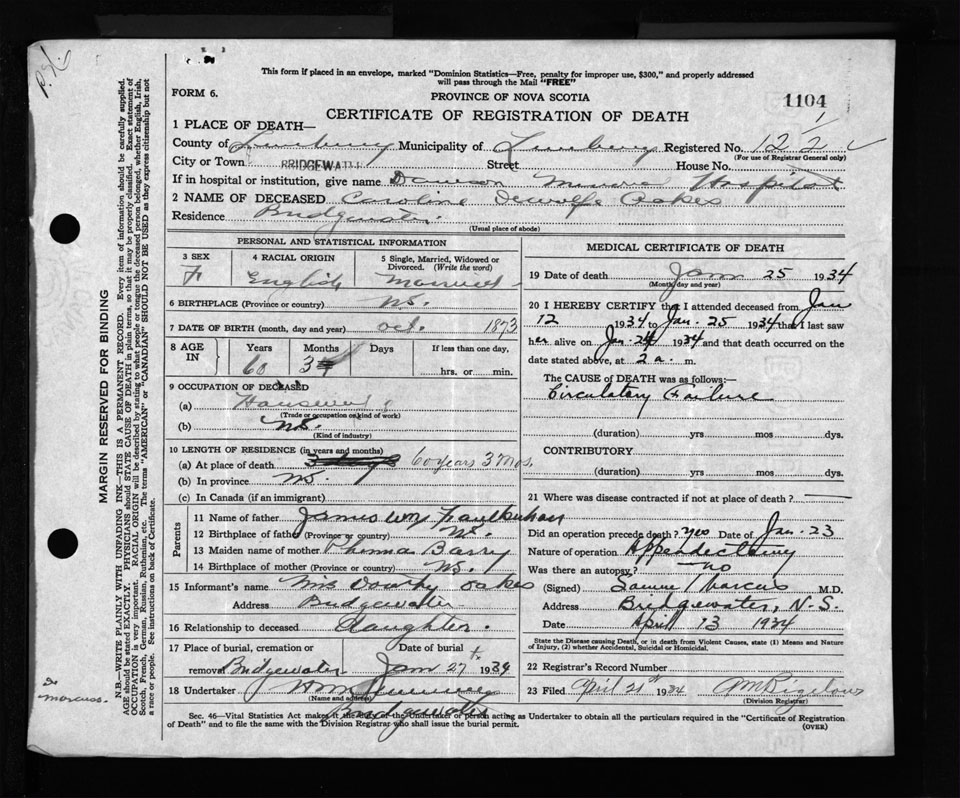 This form if placed in an envelope, marked "Dominion Statistics—Free, penalty for improper use, $300," and properly addressed
will pass through the Mail "FREE"
FORM 6. PROVINCE OF NOVA SCOTIA 1104
CERTIFICATE OF REGISTRATION OF DEATH
1 PLACE OF DEATH—
County of Lunenburg Municipality of Lunenburg Registered No. 122
(For use of Registrar General only)
City or Town BRIDGEWATER Street House No.
If in hospital or institution, give name Dawson Memorial Hospital
2 NAME OF DECEASED Caroline Dewolfe Oakes
Residence Bridgewater
(Usual place of abode)
PERSONAL AND STATISTICAL INFORMATION
3 SEX F
4 RACIAL ORIGIN English
5 Single, Married, Widowed or Divorced. (Write the word) Married
6 BIRTHPLACE (Province or country) N.S.
7 DATE OF BIRTH (month, day and year) Oct. 1873
8 AGE IN Years Months Days If less than one day,
60 3 hrs. or min.
9 OCCUPATION OF DECEASED
(a) Housewife
(Trade or occupation or kind of work)
(b) N.S.
(Kind of industry)
10 LENGTH OF RESIDENCE (in years and months)
(a) At place of death 3 days 60 years 3 Mos.
(b) In province N.S.
(c) In Canada (if an immigrant)
Parents
11 Name of father James Wm Faulkenham
12 Birthplace of father (Province or country) N.S.
13 Maiden name of mother Barry
14 Birthplace of mother (Province or country) N.S.
15 Informant's name Miss Dorothy Oakes
Address Bridgewater
16 Relationship to deceased daughter.
17 Place of burial, cremation or removal Bridgewater Date of burial Jan 27 1934
18 Undertaker
(Name and address)
Bridgewater
MEDICAL CERTIFICATE OF DEATH
19 Date of death Jan 25 1934
(Month, day and year)
20 I HEREBY CERTIFY that I attended deceased from Jan
12 1934 to Jan. 25 1934 that I last saw
her alive on Jan. 24 1934 and that death occurred on the
date stated above, at 2 a. m.
The CAUSE of DEATH was as follows:—
Circulatory Failure
(duration) yrs mos dys.
CONTRIBUTORY
(duration) yrs mos dys.
21 Where was disease contracted if not at place of death?
Did an operation precede death? Yes Date of Jan. 23
Nature of operation Appendectomy
Was there an autopsy? no
(Signed) Samuel Marcus M.D.
Address Bridgewater, N.S.
Date April 13 1934
State the Disease causing Death, or in death from Violent Causes, state (1) Means and Nature
of Injury, (2) whether Accidental, Suicidal or Homicidal.
22 Registrar's Record Number
23 Filed April 21st 1934 AM Bigelow
(Division Registrar)
Sec. 46—Vital Statistics Act makes it the duty of the Undertaker or person acting as Undertaker to obtain all the particulars required in the "Certificate of Registration
of Death" and to file the same with the Division Registrar who shall issue the burial permit. (OVER)
MARGIN RESERVED FOR BINDING
N.B.—WRITE PLAINLY WITH UNFADING INK—THIS IS A PERMANENT RECORD. Every item of information should be carefully supplied.
AGE should be stated EXACTLY. PHYSICIANS should STATE CAUSE OF DEATH in plain terms, so that it may be properly classified. Exact statement of
OCCUPATION is very important. RACIAL ORIGIN will be described by stating to what people or tongue the deceased person belonged, whether English, Irish,
Scotch, French, German, Russian, Ruthenian, etc. The terms "AMERICAN" or "CANADIAN" SHOULD NOT BE USED as they express citizenship but not
a race or people. See instructions on back of Certificate.
Dr Marcus.